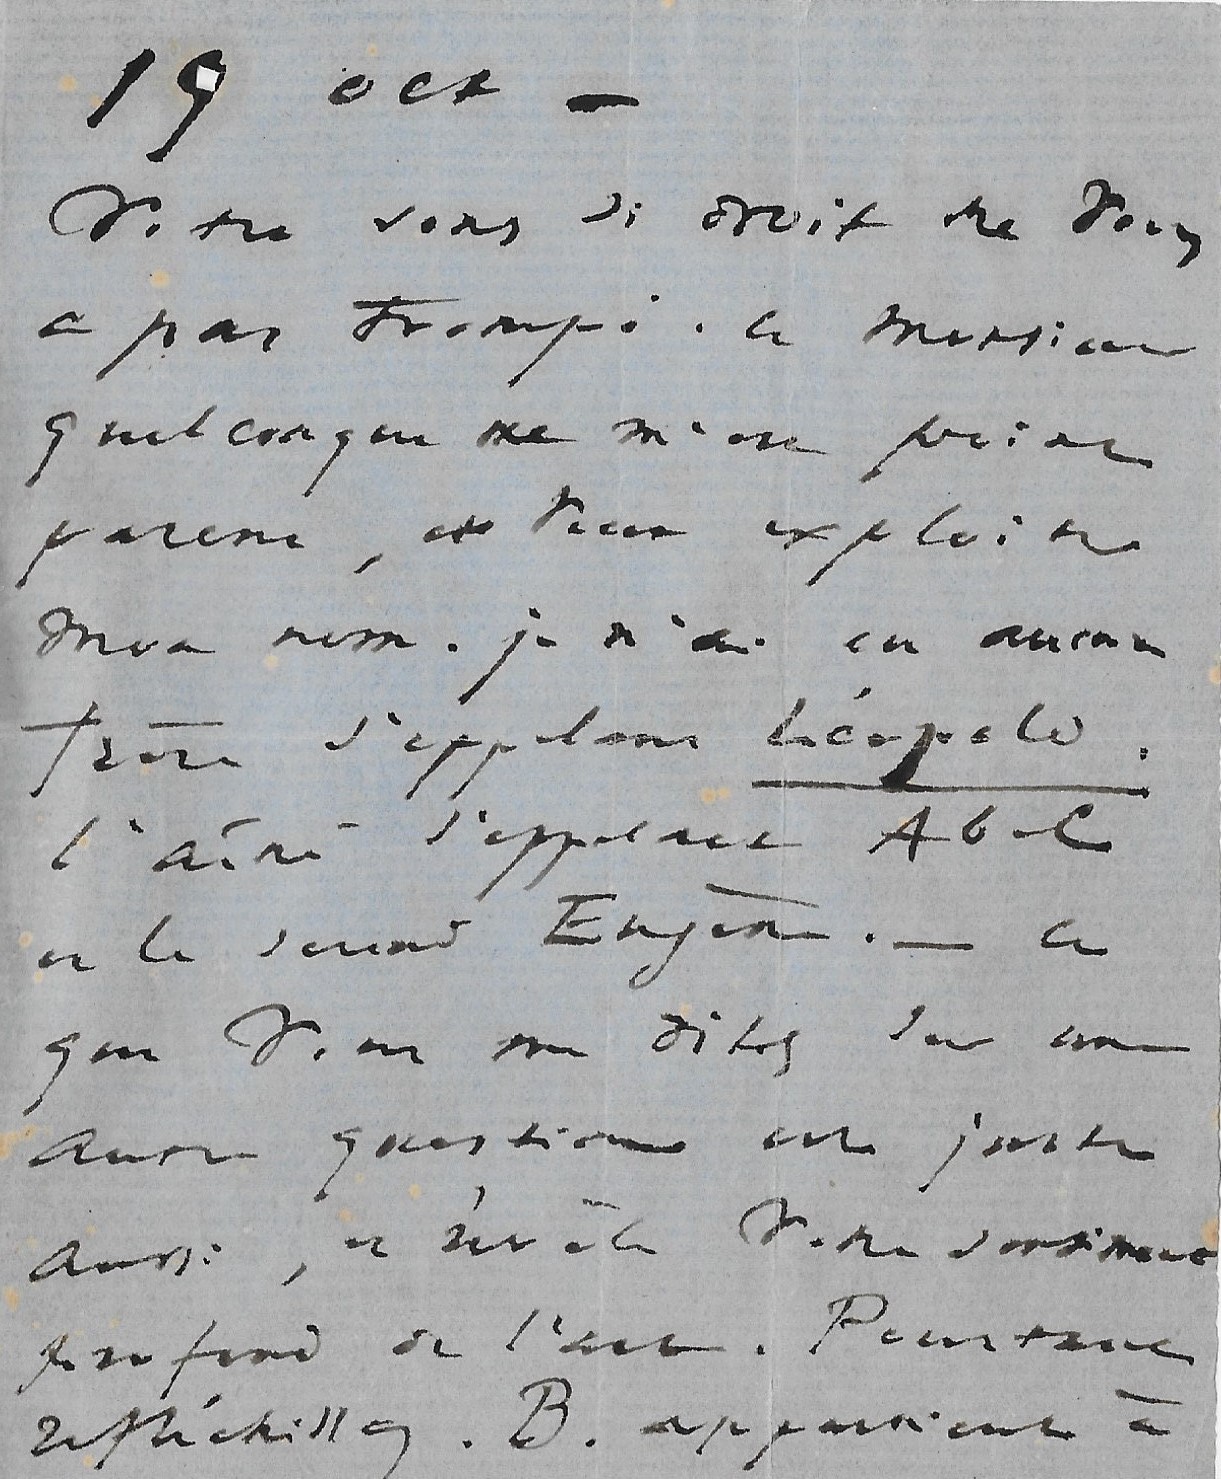 19 oct —
Votre sens si droit ne vous
a pas trompé. Ce monsieur
quelconque ne m'est point
parent, et veut exploiter
mon nom. je n'ai eu aucun
frère s'appelant Léopold.
l'aîné s'appelait Abel
et le second Eugène. — Ce
que vous me dites sur une
autre question est juste
aussi, et révèle votre sentiment
profond de l'art. Pourtant
réfléchissez. B. appartient à